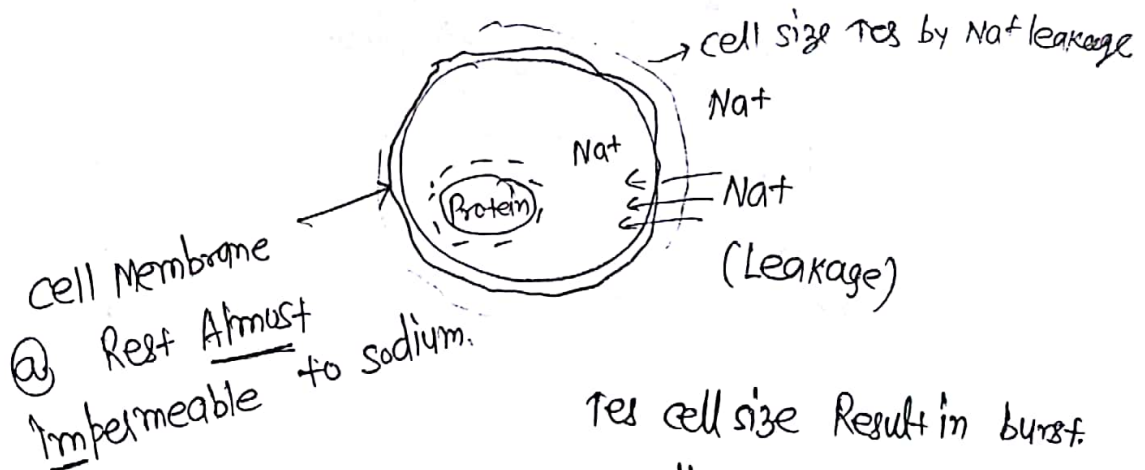 → cell size ↑es by Na+ leakage
Na+
Na+
Na+
Protein
(Leakage)
cell Membrane
@ Rest Almost
Impermeable to sodium.
↑es cell size Result in burst.